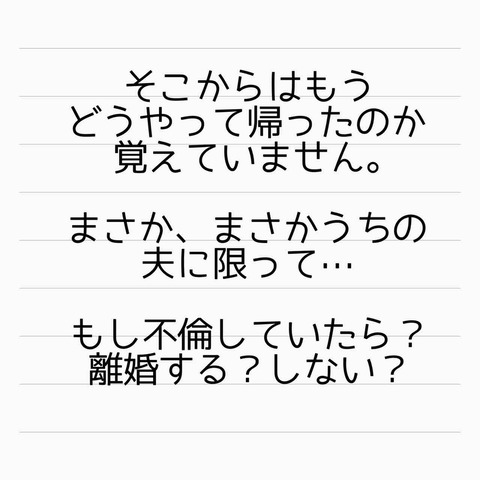 そこからはもう
どうやって帰ったのか
覚えていません。
まさか、まさかうちの
夫に限って…
もし不倫していたら？
離婚する？しない？